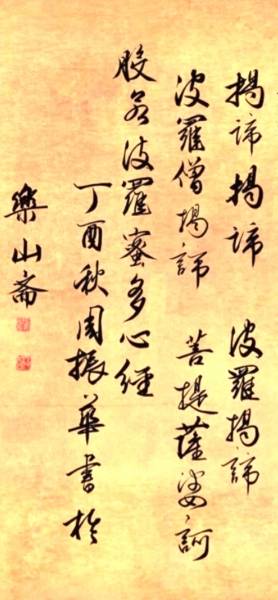 揭諦揭諦 波羅揭諦
波羅僧揭諦 菩提薩婆訶
般若波羅蜜多心經
丁酉秋周振華書於
樂山齋